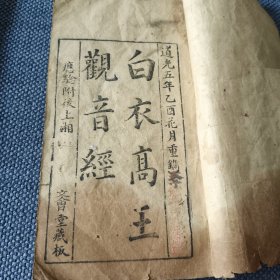 道光五年乙酉花月重鐫
白衣高王
觀音經
應驗附後上湘
文會堂藏板